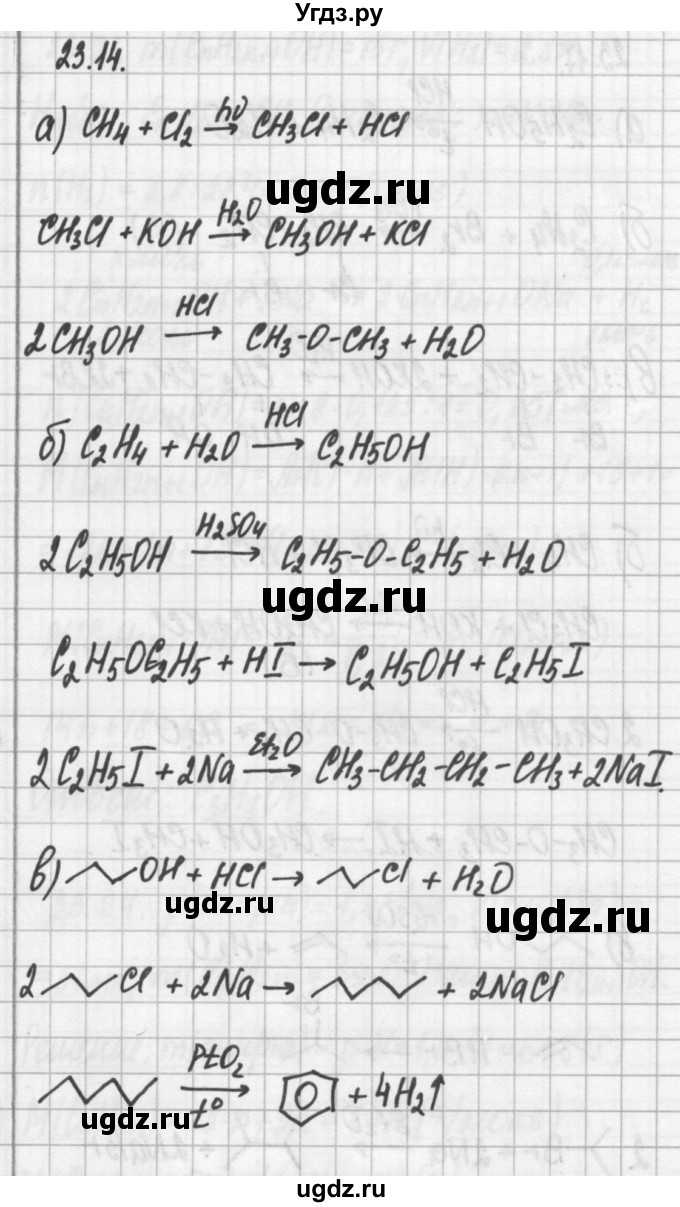 Угдз.ру
23.14.
а) CH4 + Cl2 →(hν) CH3Cl + HCl
ugdz.ru
CH3Cl + KOH →(H2O) CH3OH + KCl
2CH3OH →(HCl) CH3-O-CH3 + H2O
ugdz.ru
б) C2H4 + H2O →(HCl) C2H5OH
2C2H5OH →(H2SO4) C2H5-O-C2H5 + H2O
ugdz.ru
C2H5OC2H5 + HI → C2H5OH + C2H5I
2C2H5I + 2Na →(Et2O) CH3-CH2-CH2-CH3 + 2NaI.
ugdz.ru
в) OH + HCl → Cl + H2O
ugdz.ru ugdz.ru
2 Cl + 2Na → + 2NaCl
PtO2
→ + 4H2↑
t°
ugdz.ru ugdz.ru
ugdz.ru